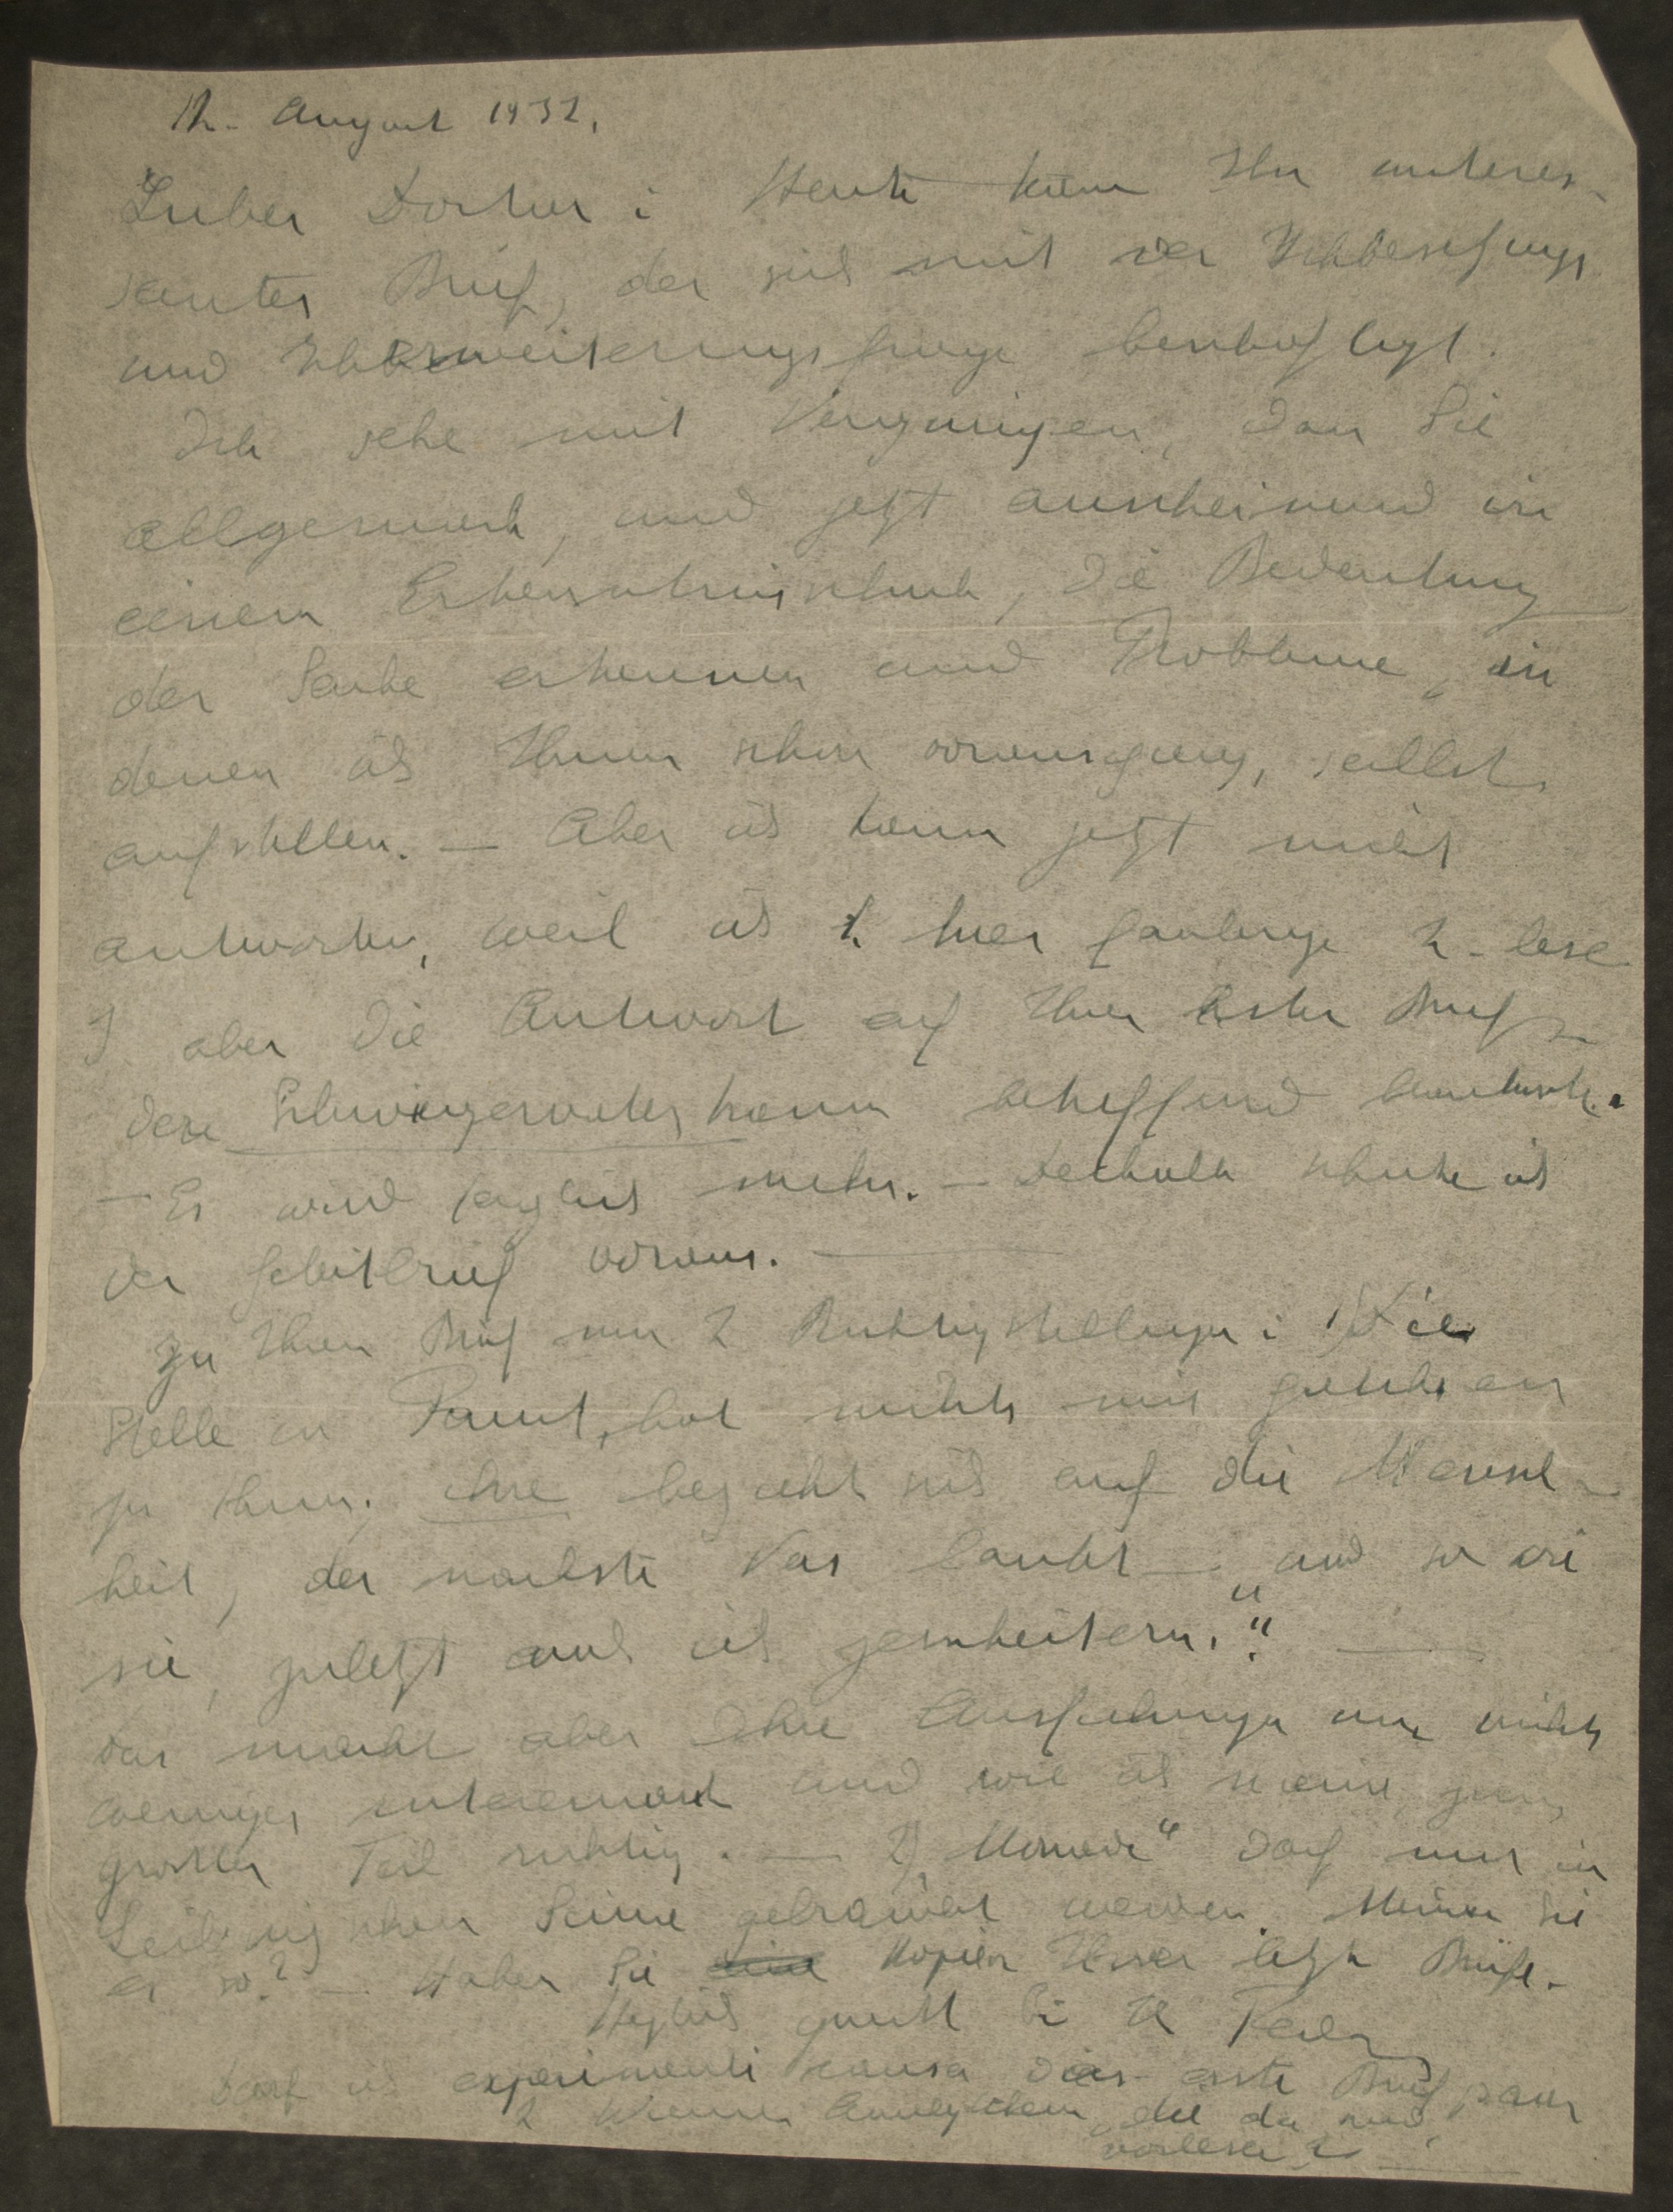 12. August 1932.
Lieber Doctor: Heute kam Ihr interes-
santer Brief, der sich mit der Ichbesetzungs
und Icherweiterungsfrage beschäftigt.
Ich sehe mit Vergnügen, dass Sie
allgemach, und jetzt anscheinend in
einem Erkenntnisschub, die Bedeutung
der Sache erkennen und Probleme, in
denen ich Ihnen schon vorausging, selbst
aufstellen. — Aber ich kann jetzt nicht
antworten, weil ich 1. hier faulenze 2. lese
aber die Antwort auf Ihren ersten Brief
den Schwiegervatertraum betreffend
— Es wird täglich mehr. — Deshalb schicke ich
den voraus. —
Zu Ihrem Brief nur 2 Richtigstellungen: 1) Die
Stelle in Faust, hat nichts mit Gretchen
zu thun; ihre bezieht sich auf die Mensch-
heit, der nächste Vers lautet — „und so wie
sie, zuletzt auch ich zerscheitern.“ —
Das macht aber Ihre Ausführungen um nichts
weniger interessant und wie ich meine, zum
grossen Teil richtig. — 2) „Monade“ darf nur im
Leibnizschen Sinne gebraucht werden. Meinen Sie
es so? — Haben Sie Kopien Ihrer letzten Briefe.
Herzlich grüsst Sie Ihr Federn
Darf ich experimenti causa den ersten Brief, paar
2 Wiener Analytikern, die da sind,
vorlesen? —